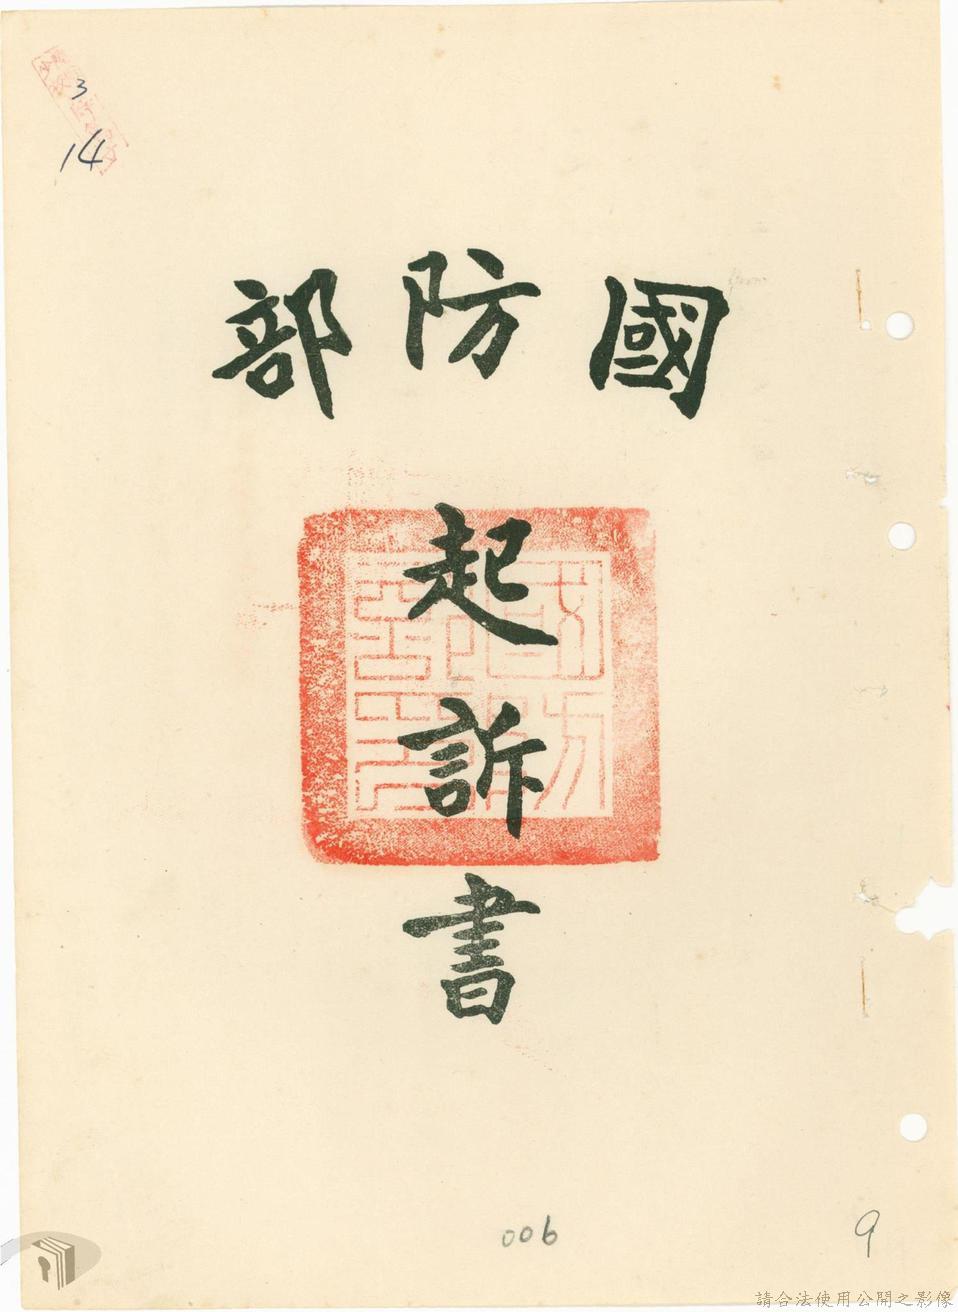 3
14
國防部
起訴書
006
9
請合法使用公開之影像